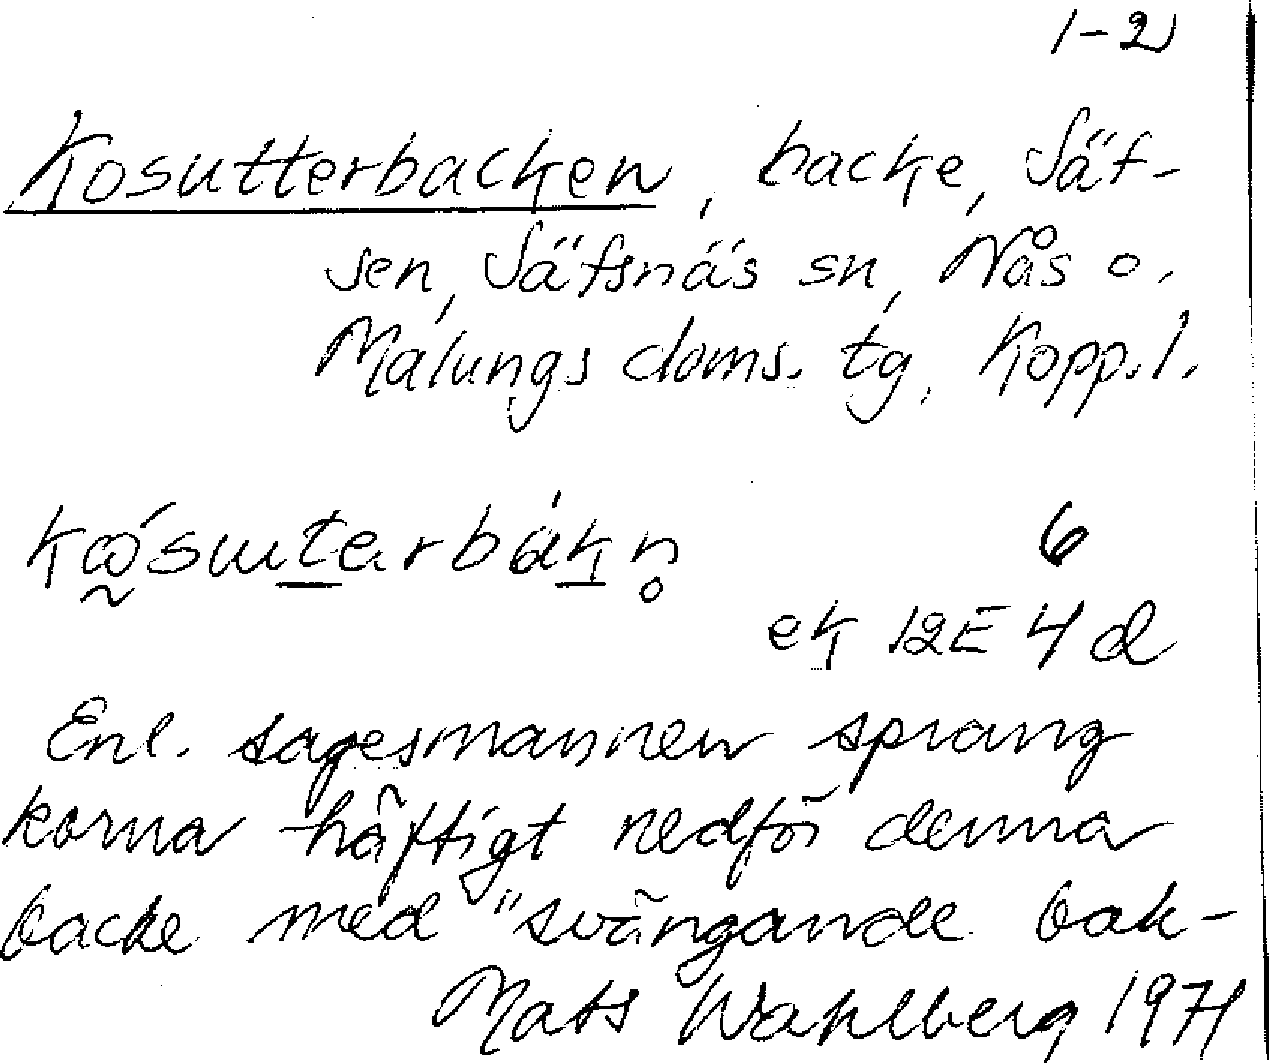 1-2
Kosutterbacken, backe, Säf-
sen, Säfsnäs sn, Nås o.
Malungs doms. tg, Kopp.l.
6
ek 12E 4d
Enl. sagesmannen sprang
korna häftigt nedför denna
backe med "svängande bak-
Mats Wahlberg 1971